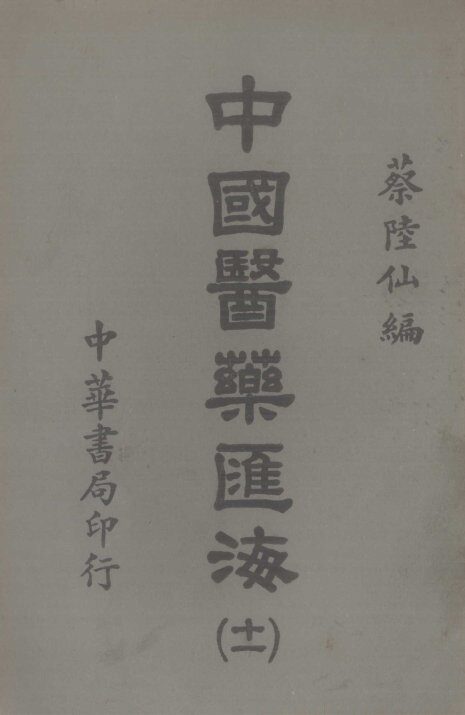 蔡陸仙編
中國醫藥匯海(十一)
中華書局印行